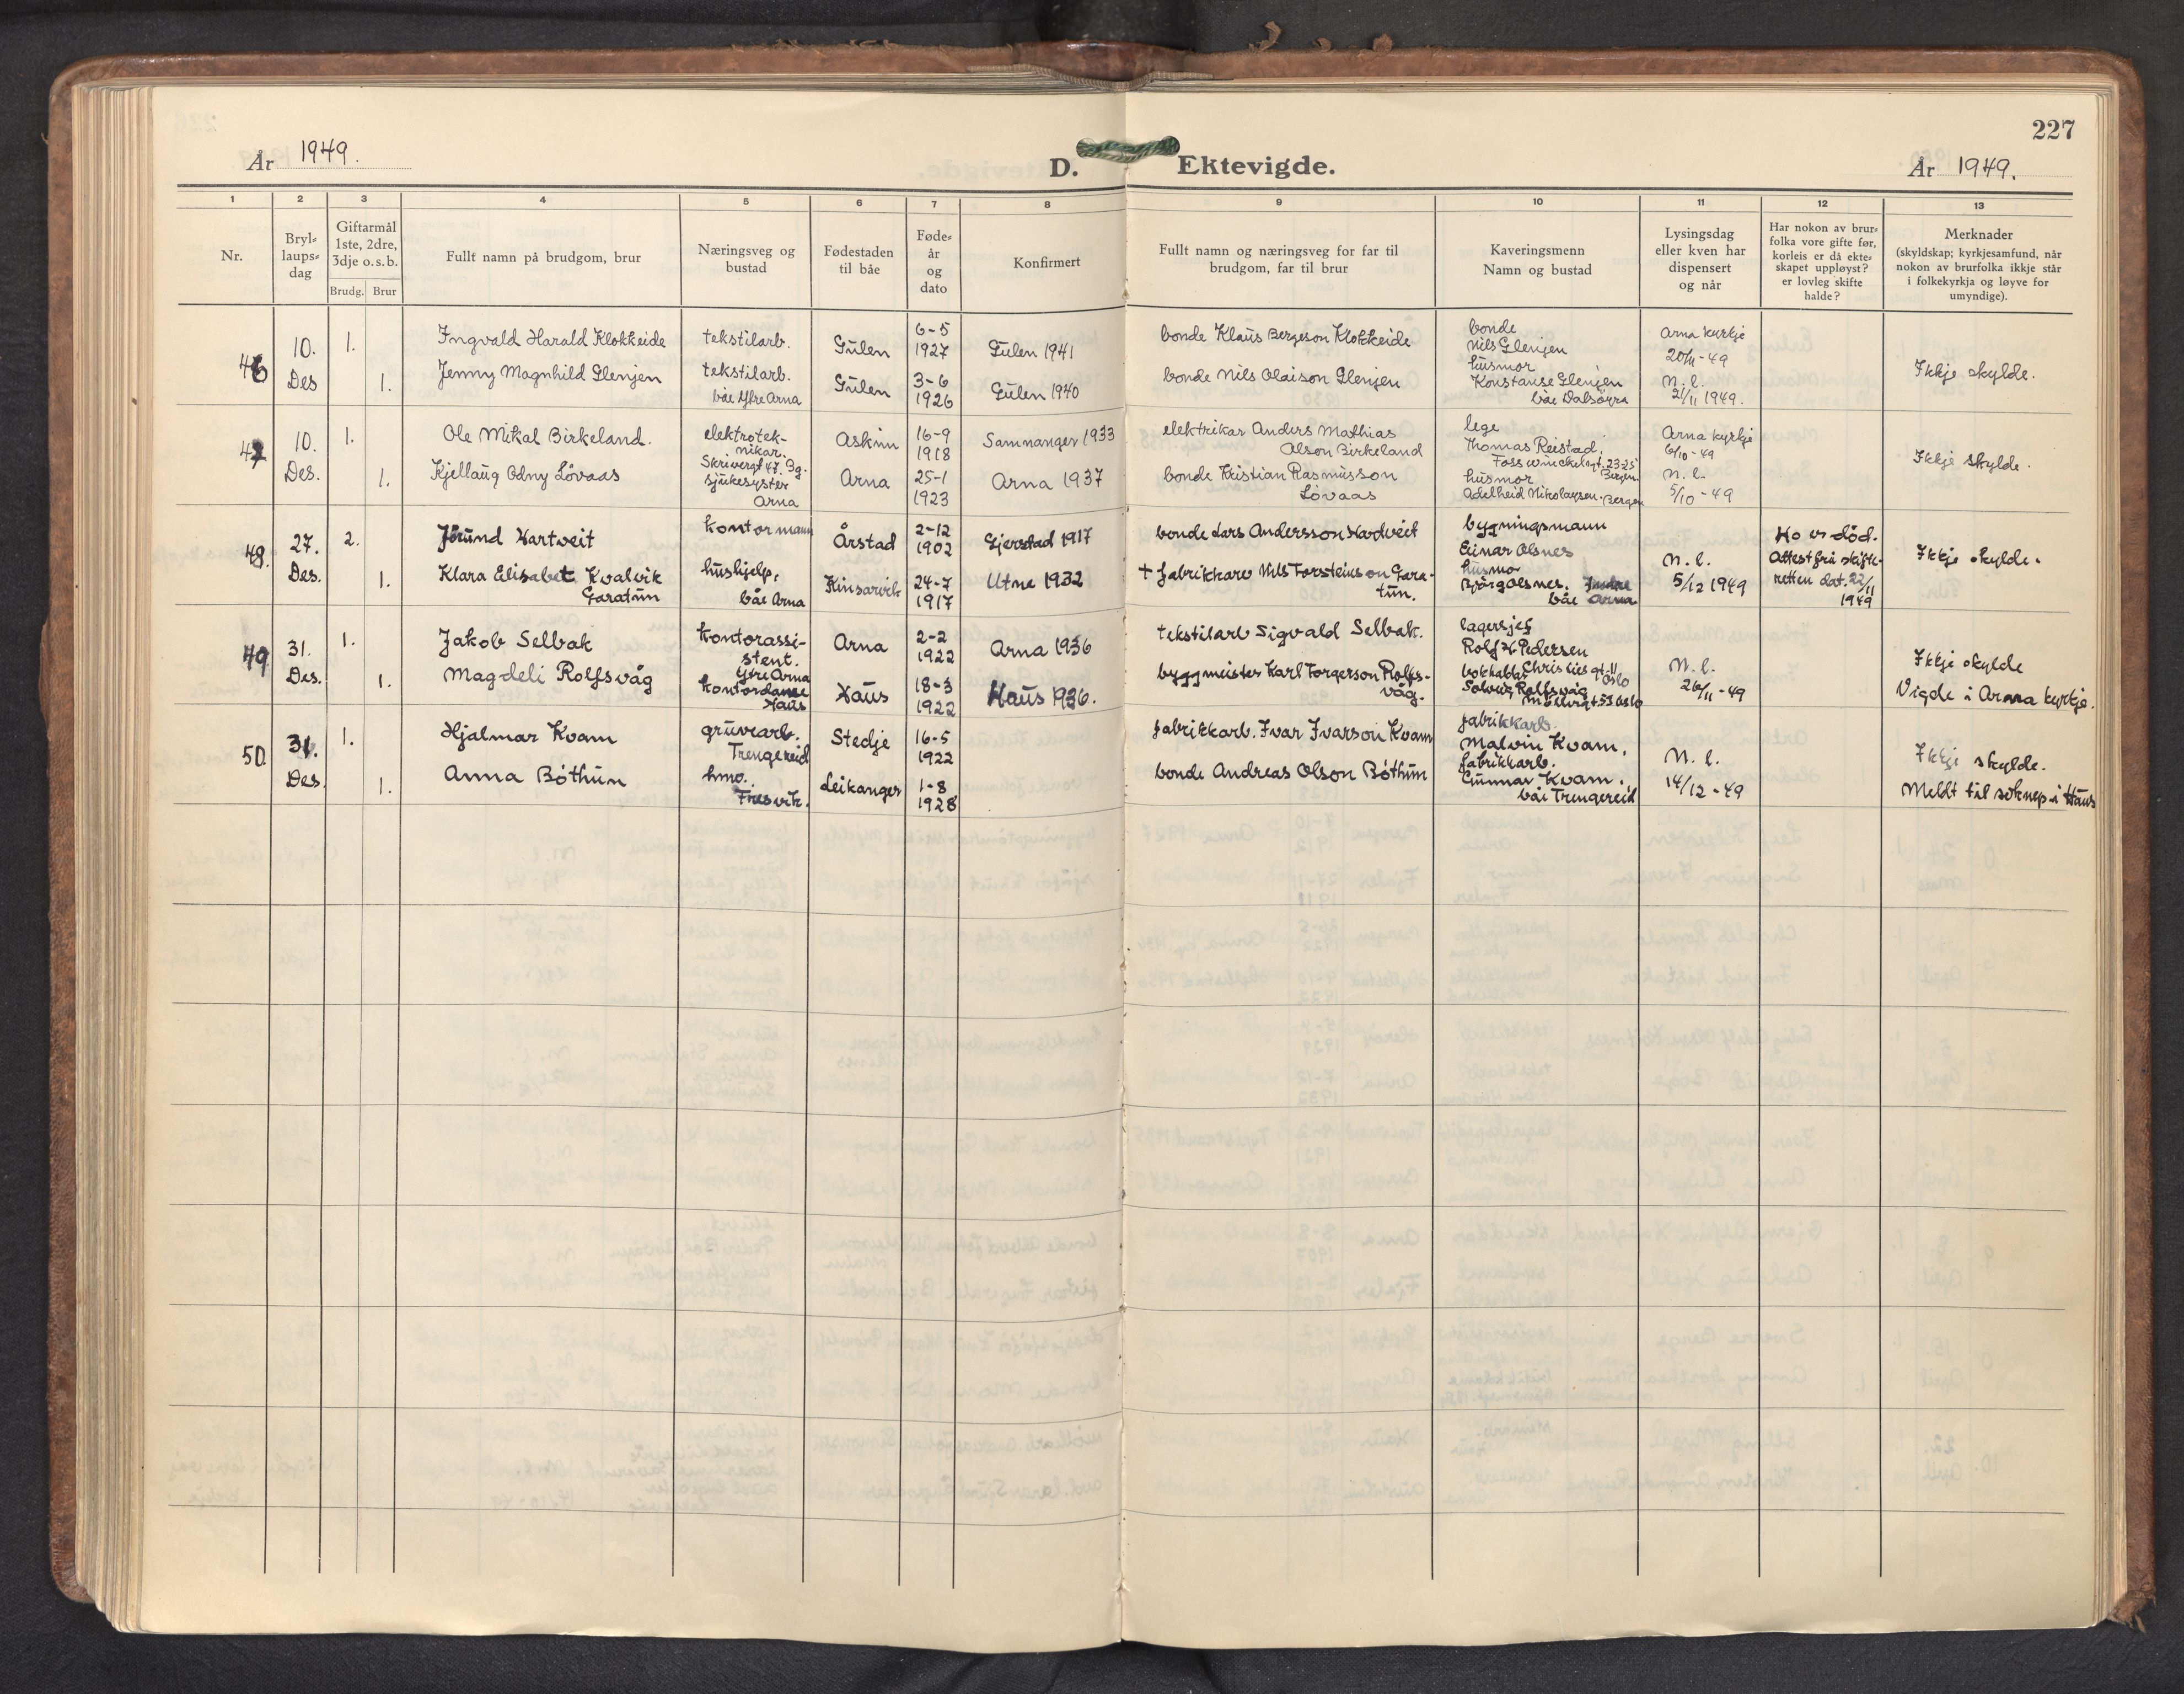 227
År 1949.
D. Ektevigde.
År 1949.
1 2 3 4 5 6 7 8 9 10 11 12 13
Nr.
Bryl-
laups-
dag
Giftarmål
1ste, 2dre,
3dje o.s.b.
Brudg. Brur
Fullt namn på brudgom, brur
Næringsveg og
bustad
Fødestaden
til båe
Føde-
år
og
dato
Konfirmert
Fullt namn og næringsveg for far til
brudgom, far til brur
Kaveringsmenn
Namn og bustad
Lysingsdag
eller kven har
dispensert
og når
Har nokon av brur-
folka vore gifte før,
korleis er då ekte-
skapet uppløyst?
er lovleg skifte
halde?
Merknader
(skyldskap; kyrkjesamfund, når
nokon av brurfolka ikkje står
i folkekyrkja og løyve for
umyndige).
46
10.
Des
1.
Ingvald Harald Klokkeide
tekstilarb.
Gulen
6-5
1927
Gulen 1941
bonde Klaus Bergeson Klokkeide
1.
Jenny Magnhild Glenjen
tekstilarb.
båe Ytre Arna
Gulen
3-6
1926
Gulen 1940
bonde Nils Olaison Glenjen
bonde
Nils Glenjen
husmor
Konstanse Glenjen
båe Dalsøyra
Arna kyrkje
20/11-49
N.l.
21/11 1949.
Ikkje skylde.
47
10.
Des.
1.
Ole Mikal Birkeland.
elektrotek-
nikar.
Skrivergt 47. Bg.
Askim
16-9
1918
Samnanger 1933
elektrikar Anders Mathias
Olson Birkeland
1.
Kjellaug Odny Lövaas
sjukesyster
Arna
Arna
25-1
1923
Arna 1937
bonde Kristian Rasmusson
Lövaas
lege
Thomas Reistad,
Foss winckelsgt. 23-25
Bergen.
husmor
Adelheid Nikolaysen. Bergen
Arna kyrkje
6/10-49
N.l.
5/10-49
Ikkje skylde.
48.
27.
Des.
2.
Jörund Hartveit
kontormann
Årstad
2-12
1902
Gjerstad 1917
bonde Lars Andersson Hartveit
1.
Klara Elisabet Kvalvik
Garatun
hushjelp,
båe Arna
Kinsarvik
24-7
1917
Utne 1932
+ fabrikkarb Nils Torsteinson Gara-
tun.
bygningsmann
Einar Olsnes
husmo
Bjørg Olsnes. Indre
båe Arna
N.l.
5/12 1949
Ho er död.
Attest frå skifte-
retten dat. 22/11
1949
Ikkje skylde.
49
31.
Des.
1.
Jakob Selbak
kontorassi-
stent.
Ytre Arna
Arna
2-2
1922
Arna 1936
tekstilarb Sigvald Selbak.
1.
Magdeli Rolfsvåg
kontordame
Haus
Haus
18-3
1922
Haus 1936.
byggmeister Karl Torgerson Rolfs-
våg.
lagersjef
Rolf H Pedersen
Christies gt. 11
Oslo
Solveig Rolfsvåg
N.l.
26/11-49
Ikkje skylde
Vigde i Arna kyrkje.
50
31.
Des
1.
Hjalmar Kvam
gruvearb.
Trengereid
Stedje
16-5
1922
fabrikkarb. Ivar Ivarson Kvam
1.
Anna Bóthun
hmo.
Fresvik.
Leikanger
1-8
1928
bonde Andreas Olson Bóthun
fabrikkarb.
Malvin Kvam,
fabrikkarb.
Gunnar Kvam.
båe Trengereid
N.l.
14/12-49
Ikkje skylde.
Meldt til soknep. i Haus